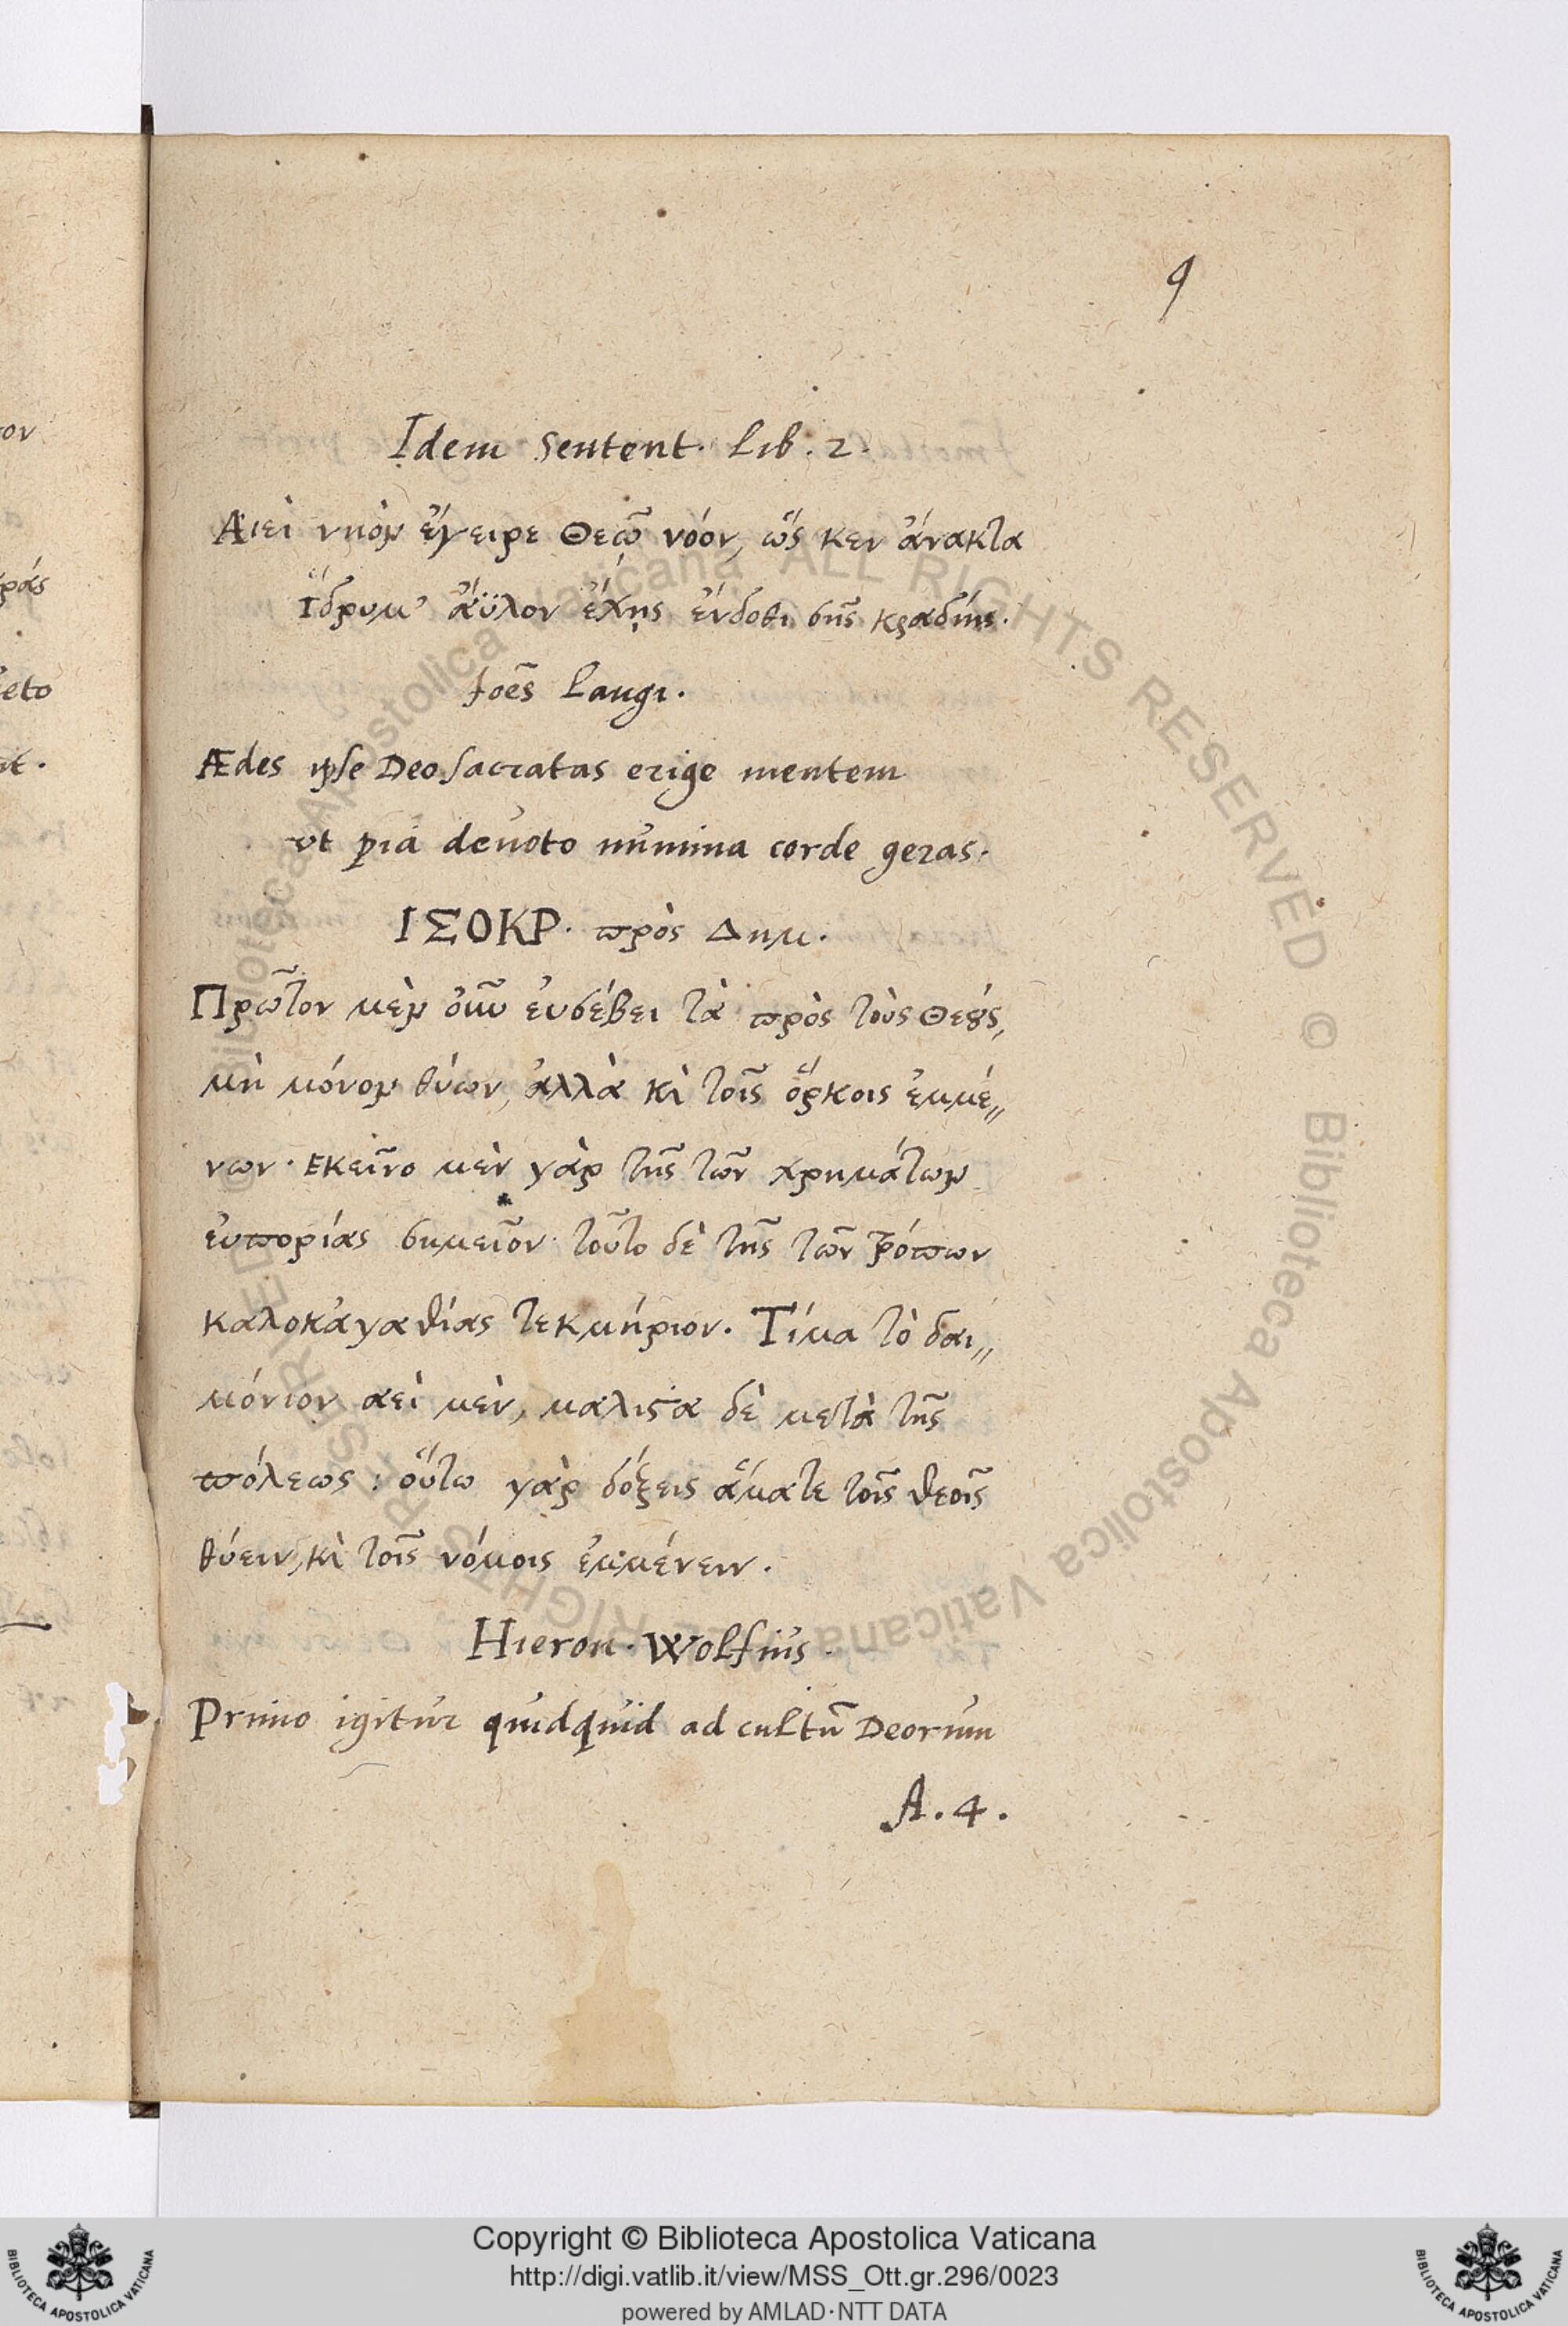 9
Idem Sentent. Lib. 2.
Αιεὶ νηὸν ἔγειρε Θεῷ νόον, ὥς κεν ἄνακτα
ἵδρυμ' ἄϋλον ἔχῃς ἔνδοθι σῆς κραδίης.
Joẽs Langi.
Ædes ipse Deo sacratas erige mentem
ut pia devoto numina corde geras.
ΙΣΟΚΡ. πρὸς Δημ.
Πρῶτον μὲν οὖν ἐυσέβει τὰ πρὸς τοὺς Θεȣ́ς,
μὴ μόνον θύων, ἀλλὰ κὶ τοῖς ὅρκοις ἐμμέ〃
νων. εκεῖνο μὲν γὰρ τῆς τῶν χρημάτων
ἐυπορίας σημεῖον. τοῦτο δὲ τῆς τῶν τρόπων
καλοκἀγαθίας τεκμήριον. Τίμα τὸ δαι〃
μόνιον αεὶ μὲν, μαλιϛα δὲ μετὰ τῆς
πόλεως : οὕτω γὰρ δόξεις ἅματε τοῖς θεοῖς
θύειν, κὶ τοῖς νόμοις ἐμμένειν.
Hieron. Wolfius.
Primo igitur quidquid ad cultũ Deorum
A. 4.
ον
ράς
eto
Copyright © Biblioteca Apostolica Vaticana
http://digi.vatlib.it/view/MSS_Ott.gr.296/0023
powered by AMLAD·NTT DATA
BIBLIOTECA APOSTOLICA VATICANA
BIBLIOTECA APOSTOLICA VATICANA